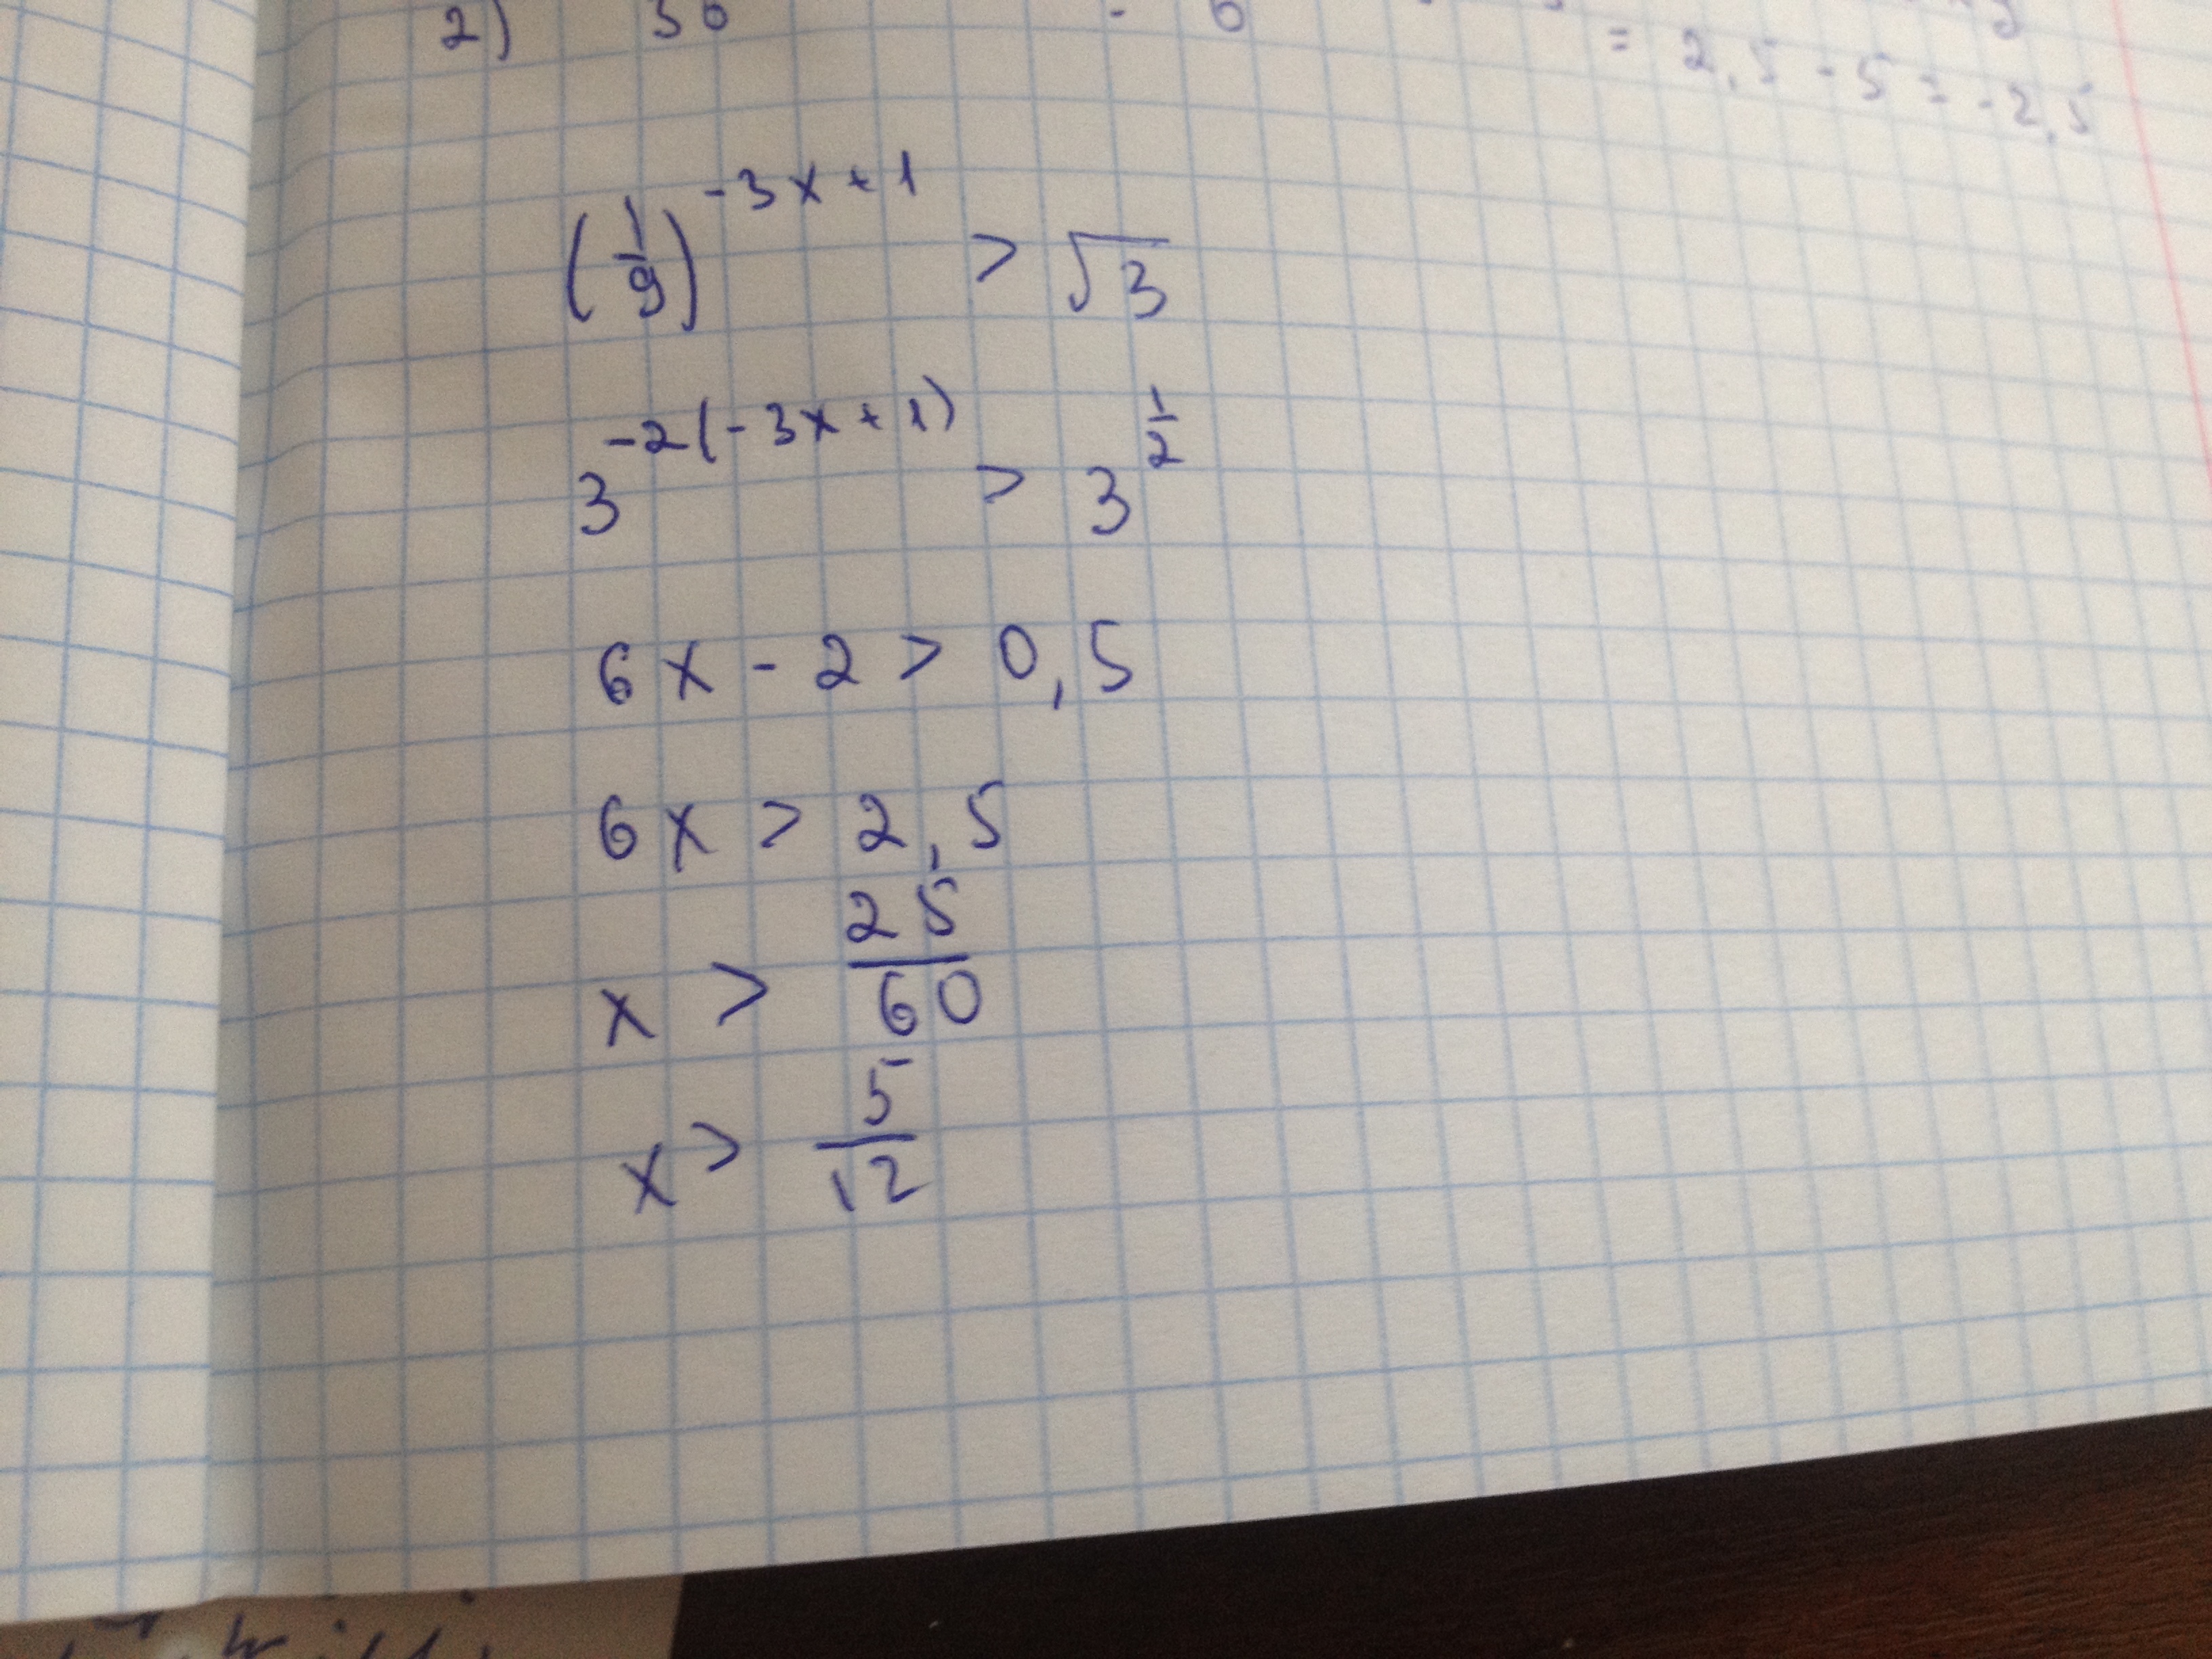 2)
= 2,5 - 5 = -2,5
(1/9)^(-3x+1) > √3
3^(-2(-3x+1)) > 3^(1/2)
6x - 2 > 0,5
6x > 2,5
x > 25/60
x > 5/12